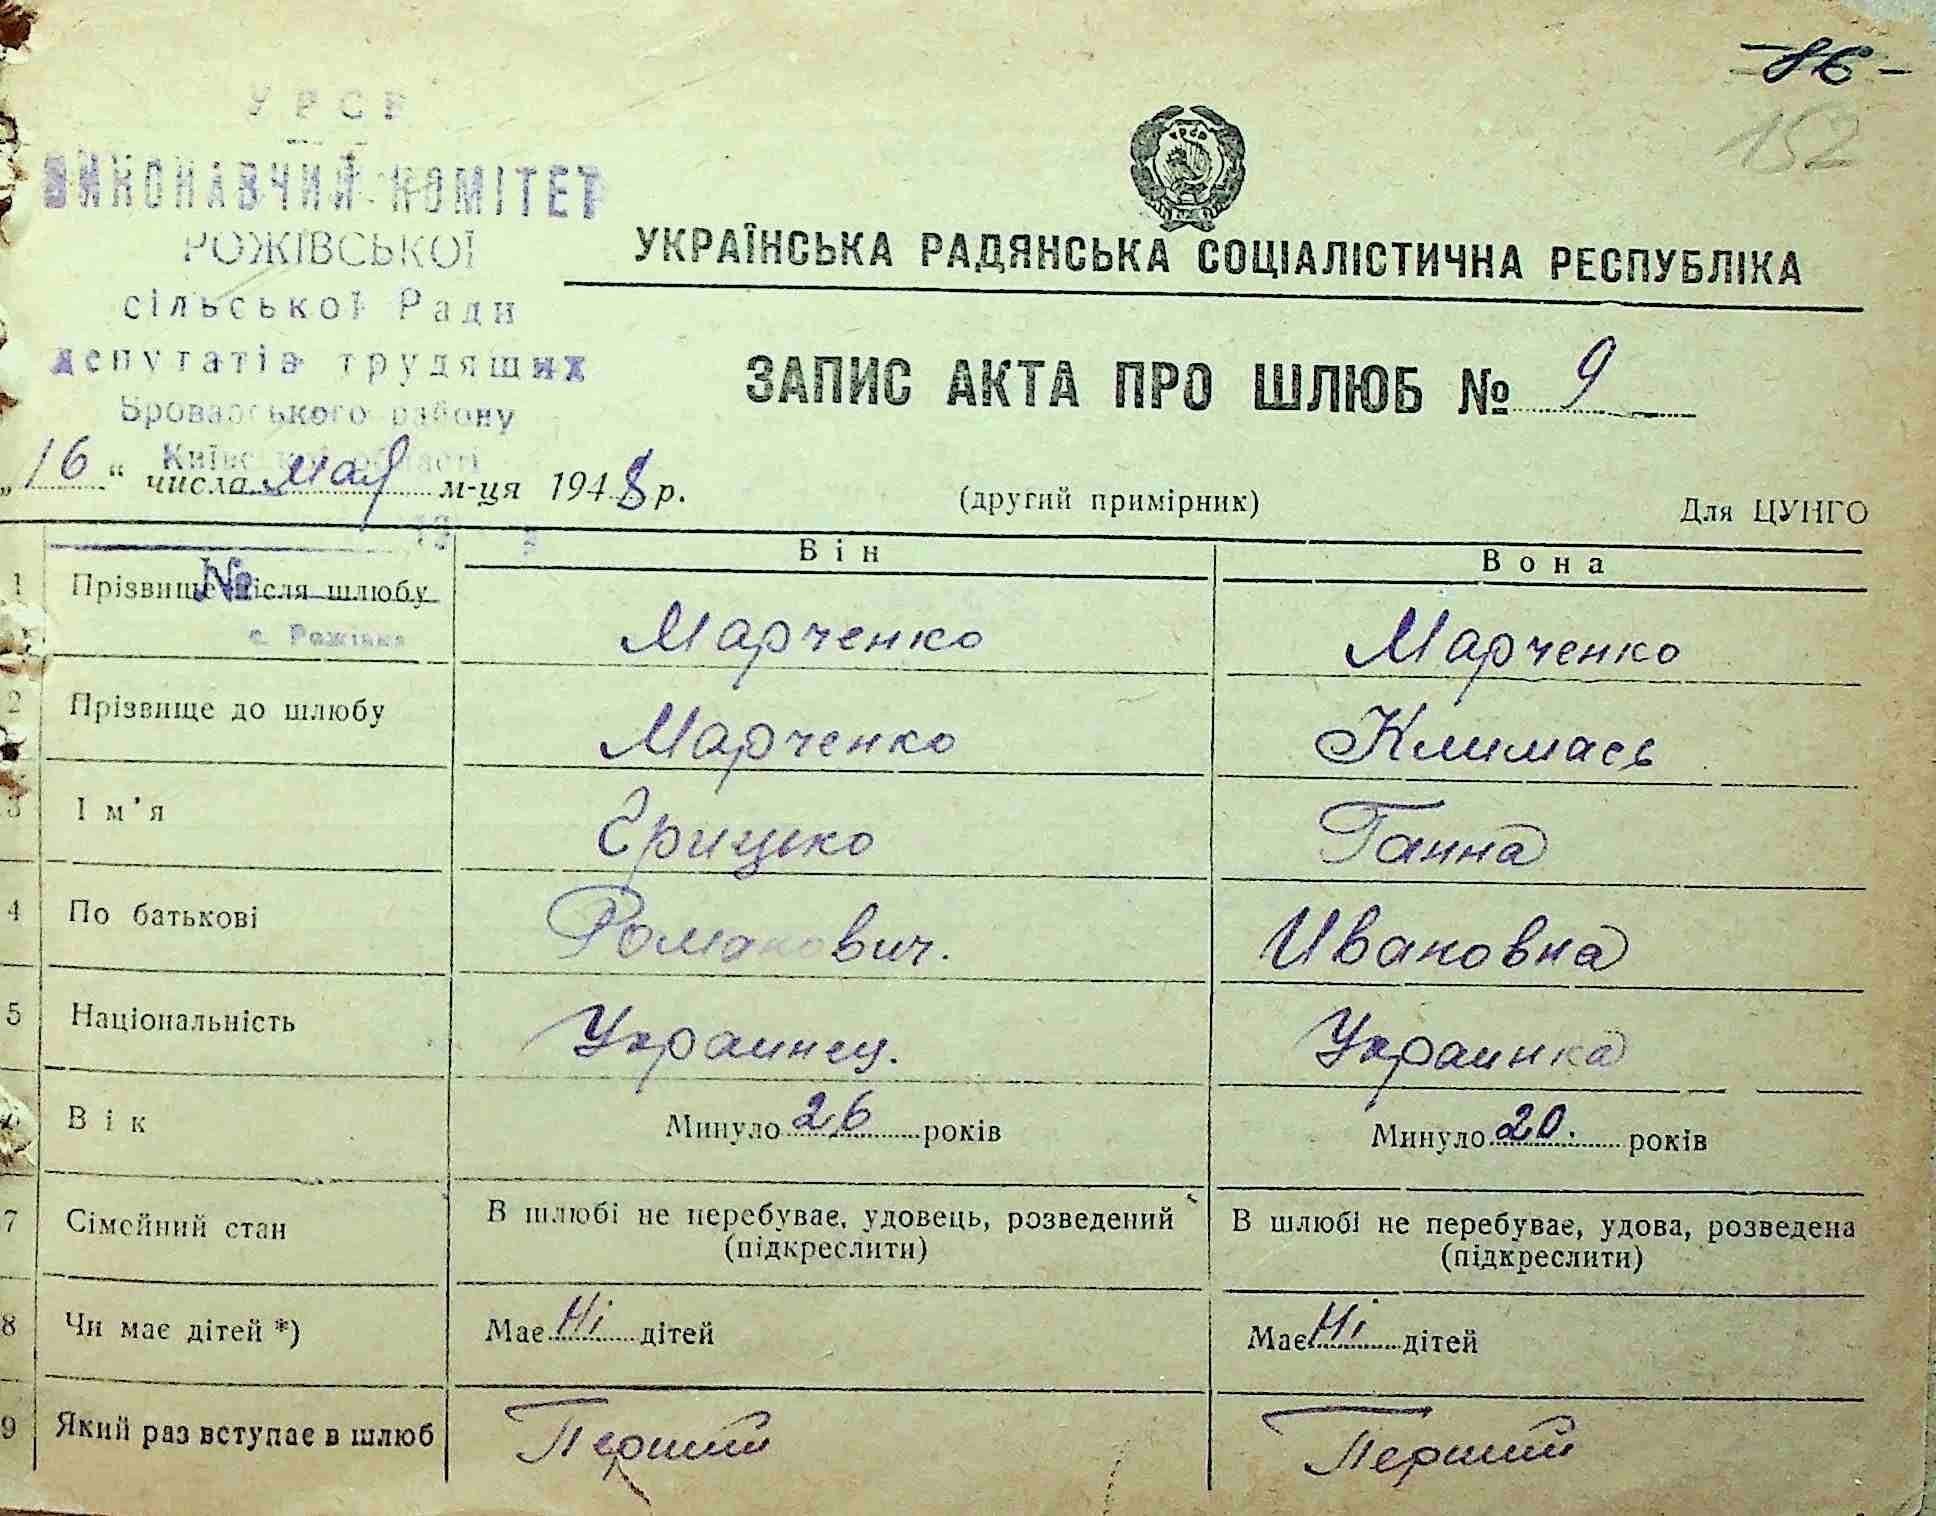 -86-
152
УРСР
ВИКОНАВЧИЙ КОМІТЕТ
РОЖІВСЬКОЇ
сільської Ради
депутатів трудящих
Броварського району
Київської області
19
№
с. Рожівка
УКРАЇНСЬКА РАДЯНСЬКА СОЦІАЛІСТИЧНА РЕСПУБЛІКА
ЗАПИС АКТА ПРО ШЛЮБ № 9
„16“ числа мая м-ця 1948 р.
(другий примірник)
Для ЦУНГО
Він Вона
1 Прізвище після шлюбу Марченко Марченко
2 Прізвище до шлюбу Марченко Климась
3 Ім'я Грицько Ганна
4 По батькові Романович. Ивановна
5 Національність Украинец. Украинка
6 Вік Минуло 26 років Минуло 20. років
7 Сімейний стан В шлюбі не перебуває, удовець, розведений (підкреслити) В шлюбі не перебуває, удова, розведена (підкреслити)
8 Чи має дітей *) Має Ні дітей Має Ні дітей
9 Який раз вступає в шлюб Перший Перший